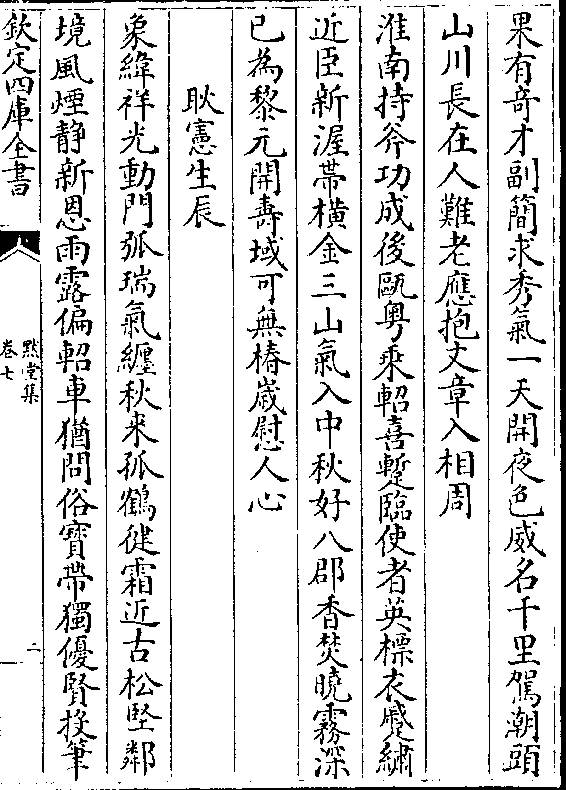 果有竒才副簡求秀氣一天開夜色威名千里駕潮頭
山川長在人難老應抱文章入相周
淮南持斧功成後甌粤乗軺喜蹔臨使者英標衣蹙繡
近臣新渥帶横金三山氣入中秋好八郡香焚曉霧深
已為黎元開壽域可無椿嵗慰人心
耿憲生辰
象緯祥光動門弧瑞氣纒秋来孤鶴健霜近古松堅鄰
境風煙静新恩雨露偏軺車猶問俗寳帶獨優賢投筆
欽定四庫全書
默堂集
卷七
二